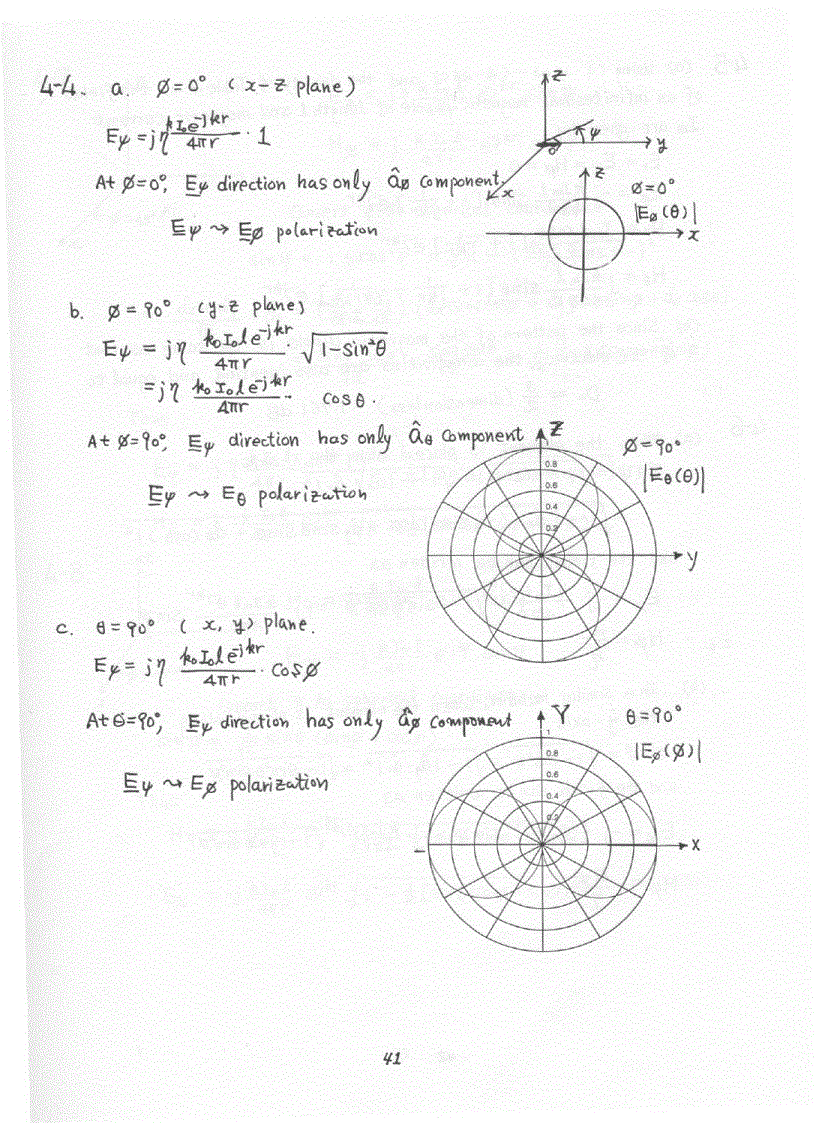 4-4. a. Ø=0° ( x-z plane)
Eψ = jη kI₀e^-jkr / 4πr · 1
At Ø=0°, Eψ direction has only âø component.
Eψ ⇝ Eø polarization
z
ψ
y
x
z
Ø=0°
|Eø(θ)|
x
b. Ø=90° (y-z plane)
Eψ = jη k₀I₀le^-jkr / 4πr · √1-sin²θ
= jη k₀I₀le^-jkr / 4πr · cosθ.
At Ø=90°, Eψ direction has only âθ component
Eψ ⇝ Eθ polarization
Z
Ø=90°
|Eθ(θ)|
0.8
0.6
0.4
0.2
y
c. θ=90° ( x, y) plane.
Eψ = jη k₀I₀le^-jkr / 4πr · cosø
At θ=90°, Eψ direction has only âø component
Eψ ⇝ Eø polarization
Y
θ=90°
|Eø(ø)|
1
0.8
0.6
0.4
0.2
X
41